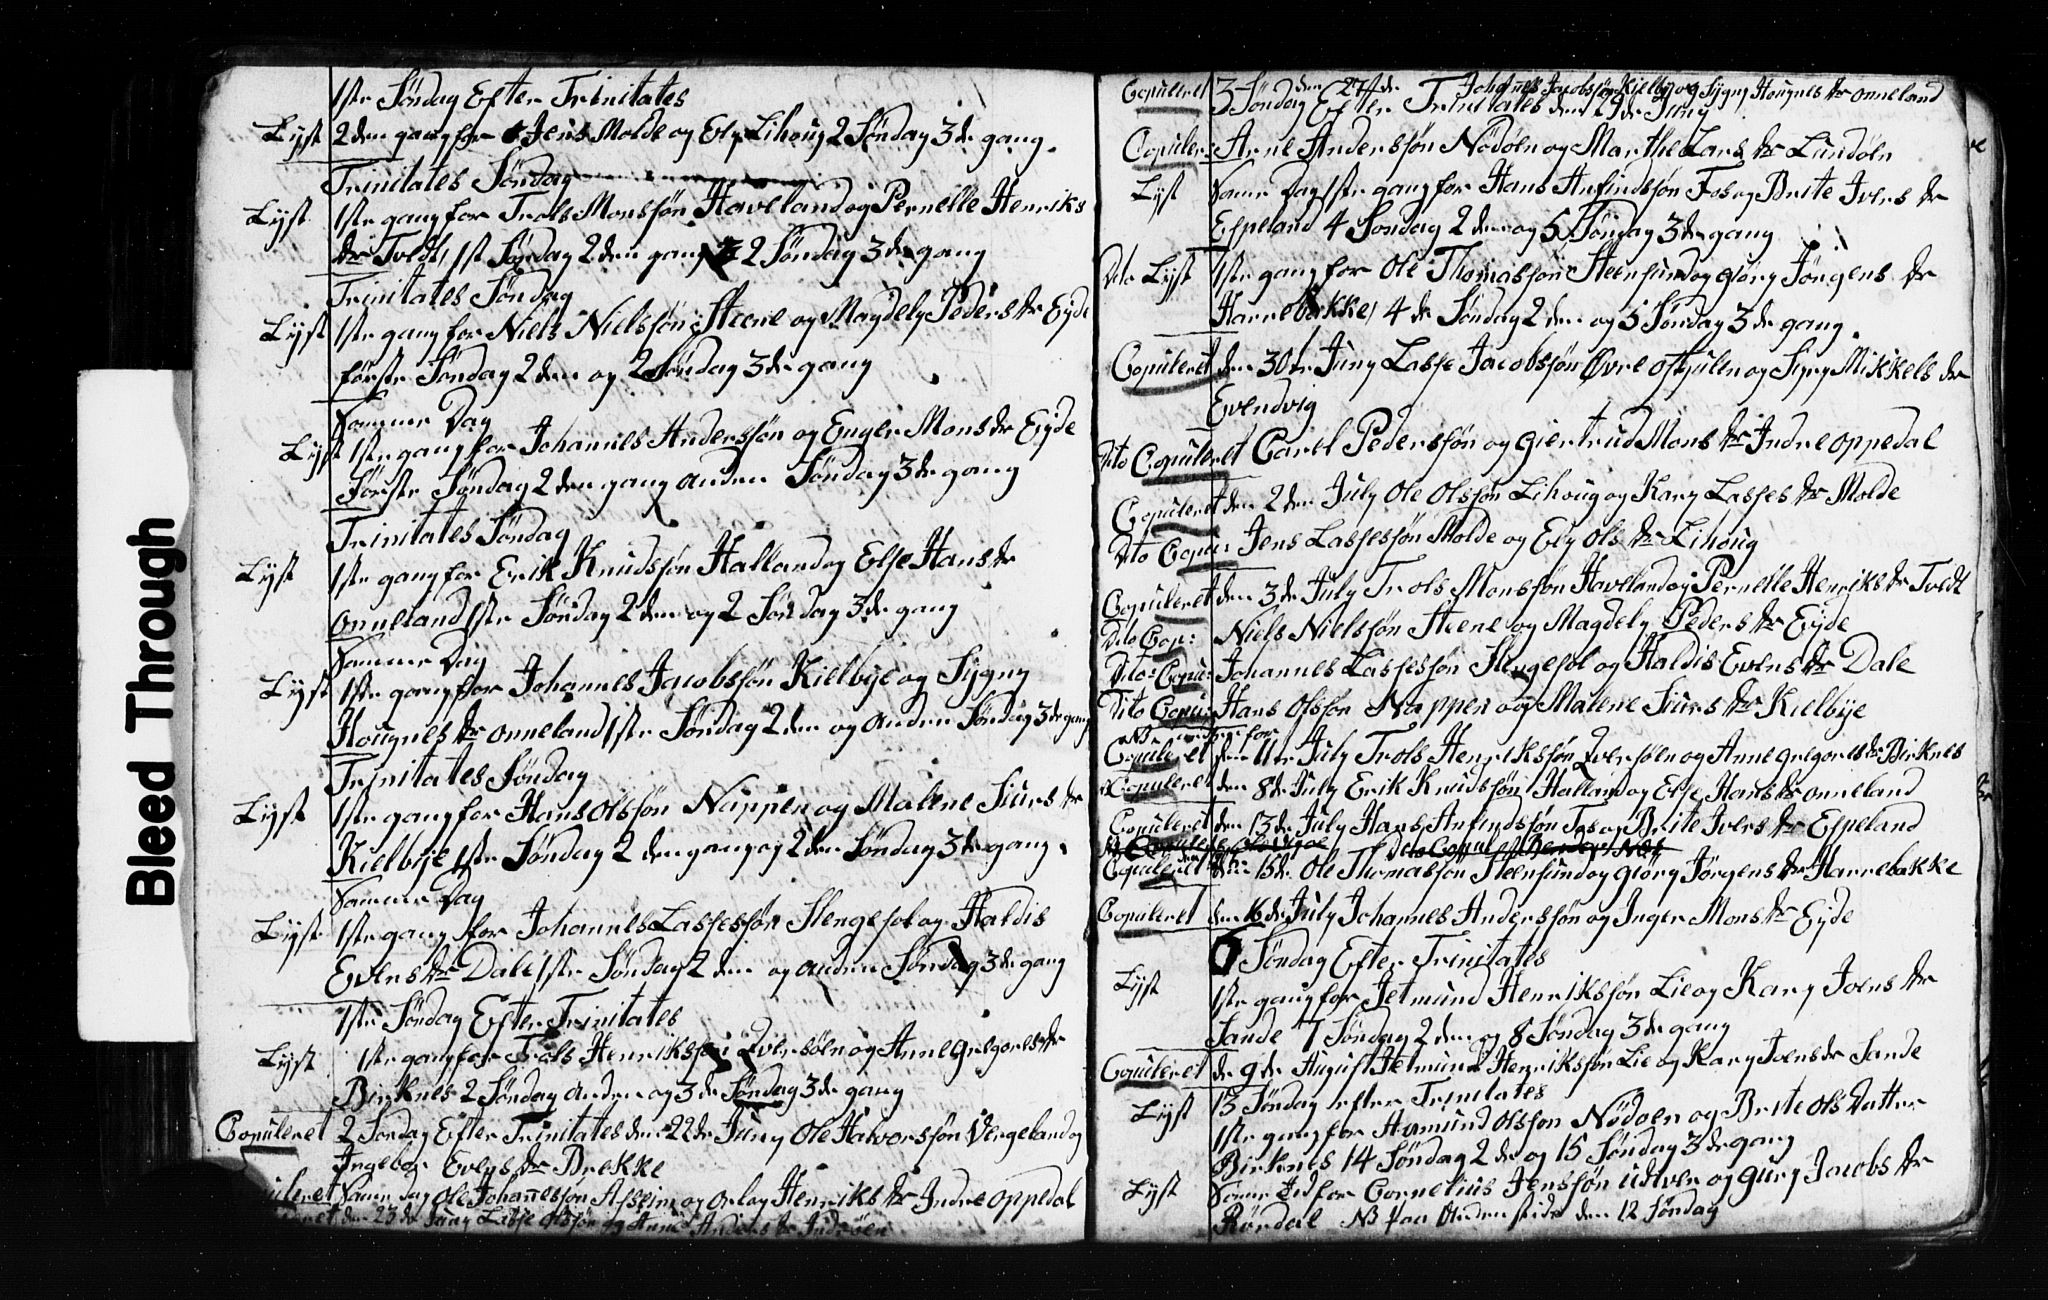 Bleed Through
1ste Søndag Efter Trinitates
Lyst 2den gang for Jens Molde og Ely Lihoug 2 Søndag 3de gang.
Trinitates Søndag
Lyst 1ste gang for Trols Monssøn Haveland og Pernelle Henriks
dr Tvedt, 1st Søndag 2den gang 2 Søndag 3de gang
Trinitates Søndag
Lyst 1ste gang for Niels Nielssøn Steene og Magdely Peders dr Eyde
første Søndag 2den og 2 Søndag 3de gang
Sammer Dag
Lyst 1ste gang for Johannes Anderssøn og Enger Mons dr Eyde
Første Søndag 2den gang anden Søndag 3de gang
Trinitates Søndag
Lyst 1ste gang for Erik Knudssøn Halland og Else Hans dr
onneland 1ste Søndag 2den og 2 Søndag 3de gang
Sammer Dag
Lyst 1ste gang for Johannes Jacobssøn Kielbye og Sygny
Hougnes dr onneland 1ste Søndag 2den og anden Søndag 3de gang
Trinitates Søndag
Lyst 1ste gang for Hans Olssøn Nappen og Malene Siurs dr
Kielbye 1ste Søndag 2den gang og 2den Søndag 3de gang.
Sammer Dag
Lyst 1ste gang for Johannes Lassessøn Slengesol og Haldis
Evens dr Dale 1ste Søndag 2den og anden Søndag 3de gang
1ste Søndag Efter Trinitates
Lyst 1ste gang for Trols Henrikssøn Qversøen og Anne gregores dr
Birknes 2 Søndag anden og 3de Søndag 3de gang
Copuleret 2 Søndag Efter Trinitates den 22de Juny Ole Halvorssøn Vergeland og
Ingebor Evens dr Brekke
Same dag Ole Johannessøn Asheim og orlog Henriks dr Indre oppedal
den 23de Juny Lasse Olssøn og Anne Anders dr Indrøen
Copuleret den 27de Johannes Jacobssøn Kielbye og Sygny Hougnes dr onneland
3 Søndag Efter Trinitates den 29de Juny
Copuler: Arne Anderssøn Nødøln og Marthe Lars dr Lundøln
Lyst Samme Dag 1ste gang for Hans Anfindssøn Fos og Brite Ivers dr
Espeland 4 Søndag 2den og 5 Søndag 3de gang
Dito Lyst 1ste gang for Ole Thomassøn Steensund og giøry Jørgens dr
Harrebakke, 4de Søndag 2den og 5 Søndag 3de gang.
Copuleret den 30te Juny Lasse Jacobssøn Øvre ostgulen og Syny Mikkels dr
Evendvig
Dito Copuleret Carel Pederssøn og giertrud Mons dr Indre oppedal
Copuleret den 2den July Ole Olssøn Lihoug og Kary Lasses dr Molde
Dito Copu: Jens Lassessøn Molde og Ely Ols dr Lihoug
Copuleret den 3de July Trols Monssøn Haveland og Pernelle Henriks dr Tvedt
Dito Cop: Niels Nielssøn Steene og Magdely Peders dr Eyde
Dito Copu: Johannes Lassessøn Slengesol og Haldis Evens dr Dale
Dito Copu: Hans Olssøn Nappen og Malene Siurs dr Kielbye
Copuleret den 11te July Trols Henrikssøn Qversøen og Anne gregores dr Birknes
Copuleret den 8de July Erik Knudssøn Halland og Else Hans dr onneland
Copuleret den 13de July Hans Anfindssøn Fos og Brite Ivers dr Espeland
Copuleret den 15de Ole Thomassøn Steensund og giøry Jørgens dr Harrebakke
Copuleret den 16de July Johannes Anderssøn og Inger Mons dr Eyde
6 Søndag Efter Trinitates
Lyst 1ste gang for Jetmund Henrikssøn Lie og Kary Joens dr
Sande 7 Søndag 2den og 8 Søndag 3de gang
Copuleret de 9de August Jetmund Henrikssøn Lie og Kary Joens dr Sande
13 Søndag efter Trinitates
Lyst 1ste gang for Asmund Olssøn Nødøen og Brite Ols Datter
Birknes 14 Søndag 2de og 15 Søndag 3de gang
Lyst Same Tid for Cornelius Jenssøn udtver og gury Jacobs dr
Rørdal NB paa Anden side den 12 Søndag